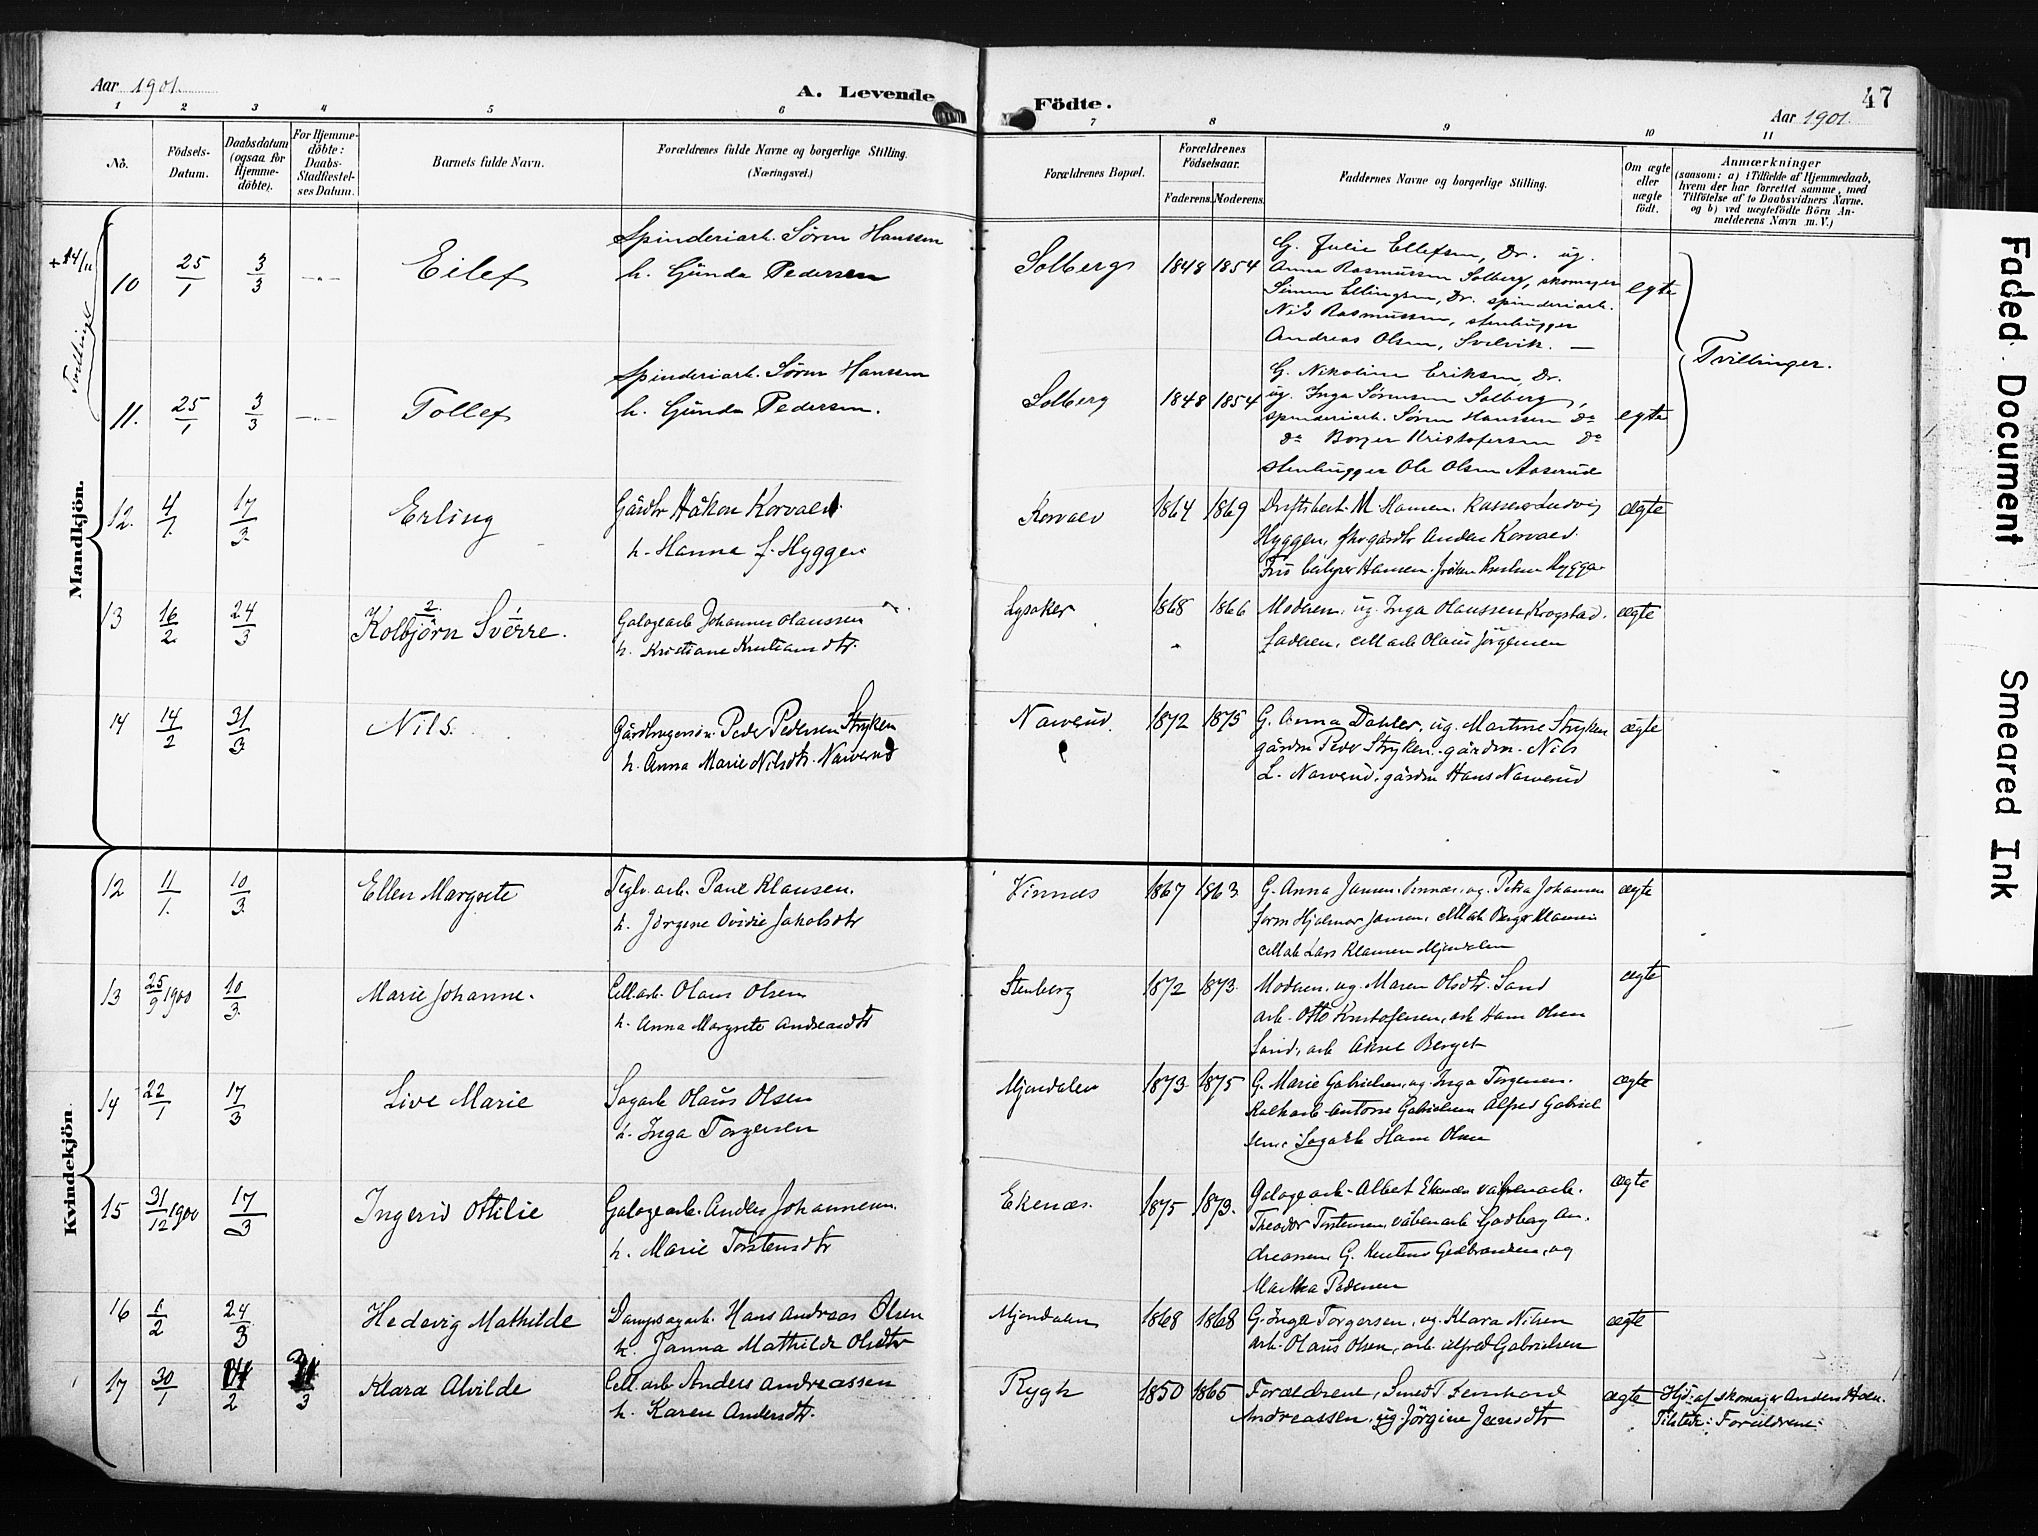 Aar 1901.
A. Levende
Födte.
47
Aar 1901.
1 2 3 4 5 6 7 8 9 10 11
No.
Födsels-
Datum.
Daabsdatum
(ogsaa for
Hjemme-
döbte).
For Hjemme-
döbte:
Daabs-
Stadfæstel-
ses Datum.
Barnets fulde Navn.
Forældrenes fulde Navne og borgerlige Stilling.
(Næringsvei.)
Forældrenes Bopæl.
Forældrenes
Födselsaar.
Faderens. Moderens.
Faddernes Navne og borgerlige Stilling.
Om ægte
eller
uægte
födt.
Anmærkninger
(saasom: a) i Tilfælde af Hjemmedaab,
hvem der har forrettet samme, med
Tilföielse af to Daabsvidners Navne.
og b) ved uægtefödte Börn An-
melderens Navn m. V.)
Mandkjön.
10 25/1 3/3 Eilef
Spinderiarb. Sören Hanssen
h. Gunda Pedersen
Solberg 1848 1854
G. Julie Ellefsen, Dr. ug.
Anna Rasmussen Solberg, skomager
Simen Ellingsen, Dr. spinderiarb.
Nils Rasmussen, stenhugger
Andreas Olsen, Svelvik. —
egte
Tvillinger.
11. 25/1 3/3 Tollef
Spinderiarb. Sören Hanssen
h. Gunda Pedersen.
Solberg 1848 1854
G. Nikoline Eriksen, Dr.
ug. Inga Sörensen Solberg,
spinderiarb. Sören Hanssen Do
Do Borger Kristofersen Do
stenhugger Ole Olsen Aaserud
egte
12. 4/1. 17/3. Erling
Gårdbr Håkon Korvald.
h. Hanna f. Hyggen.
Korvald 1864 1869
Driftsbest. M. Hansen. Kasserer Ludvig
Hyggen. Gårdbr Anders Korvald.
ægte
13 16/2 24/3 Kolbjörn Sverre.
2 1
Galogearb Johannes Olaussen
h. Kristiane Kristiansdtr.
Lysaker 1868 1866
Moderen, ug. Inga Olaussen, Krogstad.
Faderen, cell.arb Olaus Jörgensen
ægte
14 14/2 31/3 Nils.
Gårdbrugersön Peder Pedersen Stryken
h. Anna Marie Nilsdtr. Narverud
Narverud. 1872 1875
G. Anna Dahler, ug. Martine Stryken
gårdm Peder Stryken. gårdm. Nils
L. Narverud. gårdm Hans Narverud
ægte
Kvindekjön
12 11/1. 10/3. Ellen Margrete
Teglv.arb. Paul Klausen.
h. Jörgine Ovidie Jakobsdtr
Vinnæs 1867 1863
G. Anna Jansen. Vinnæs, ug. Petra Johansen
Form Hjalmar Jansen, cellarb Borger Klausen
cellarb Lars Klausen Mjøndalen
ægte
13 25/9 1900 10/3. Marie Johanne.
Cell.arb. Olaus Olsen
h. Anna Margrete Andreasdtr
Stenberg 1872 1873.
Moderen, ug. Maren Olsdtr. Sand
arb. Otto Kristofersen, arb Hans Olsen
Sand, arb Aksel Berget
ægte
14 22/1 17/3 Live Marie
Sagarb Olaus Olsen
h. Inga Torgersen
Mjøndalen 1873. 1875
G. Marie Gabrielsen, ug. Inga Torgersen.
Kalkarb Antone Gabrielsen Alfred Gabriel
sen. Sagarb Hans Olsen
ægte
15 31/12 1900 17/3 Ingerid Ottilie
Galogearb. Anders Johannesen.
h. Marie Torstensdtr
Ekenæs. 1875 1873.
Galogearb. Albert Ekenæs våbenarb.
Theodor Torstensen, våbenarb Godberg An.
dreassen G. Kirstine Gulbrandsen, ug
Martha Pedersen
ægte
16 1/2 24/3 Hedevig Mathilde
Dampsagarb. Hans Andreas Olsen
h. Janna Mathilde Olsdtr
Mjøndalen 1868 1868
G. Inga Torgersen, ug. Klara Nilsen
arb. Olaus Olsen, arb. Alfred Gabrielsen
ægte
17 30/1 2 3 Klara Alvilde
Cell.arb Anders Andreassen
h. Karen Andersdtr.
Rygh 1850 1865
Forældrene, Smed T. Bernhard
Andreassen. ug Jörgine Jansdtr
ægte
Hjd: af skomager Anders Hoen.
Tilstede: Forældrene.
Faded Document
Smeared Ink